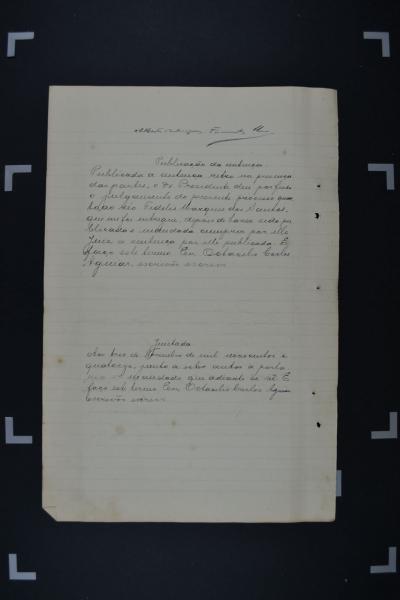 Publicação da sentença
Publicada a sentença retro na presença
das partes, o Dr Presidente deu por findo
o julgamento do presente processo
réo Fidelis Marques dos Santos,
que me foi entregue, depois de haver sido pu
blicada e mandada cumprir por elle
Juiz a sentença por elle publicada. E
faço este termo Eu, Octavilio Carlos
Aguiar, escrivão escrevi
Juntada
Aos tres de Novembro de mil novecentos e
quatorze, junto a estes autos a
que adeante se vê. E
faço este termo Eu Octavilio Carlos Aguiar
Escrivão escrevi